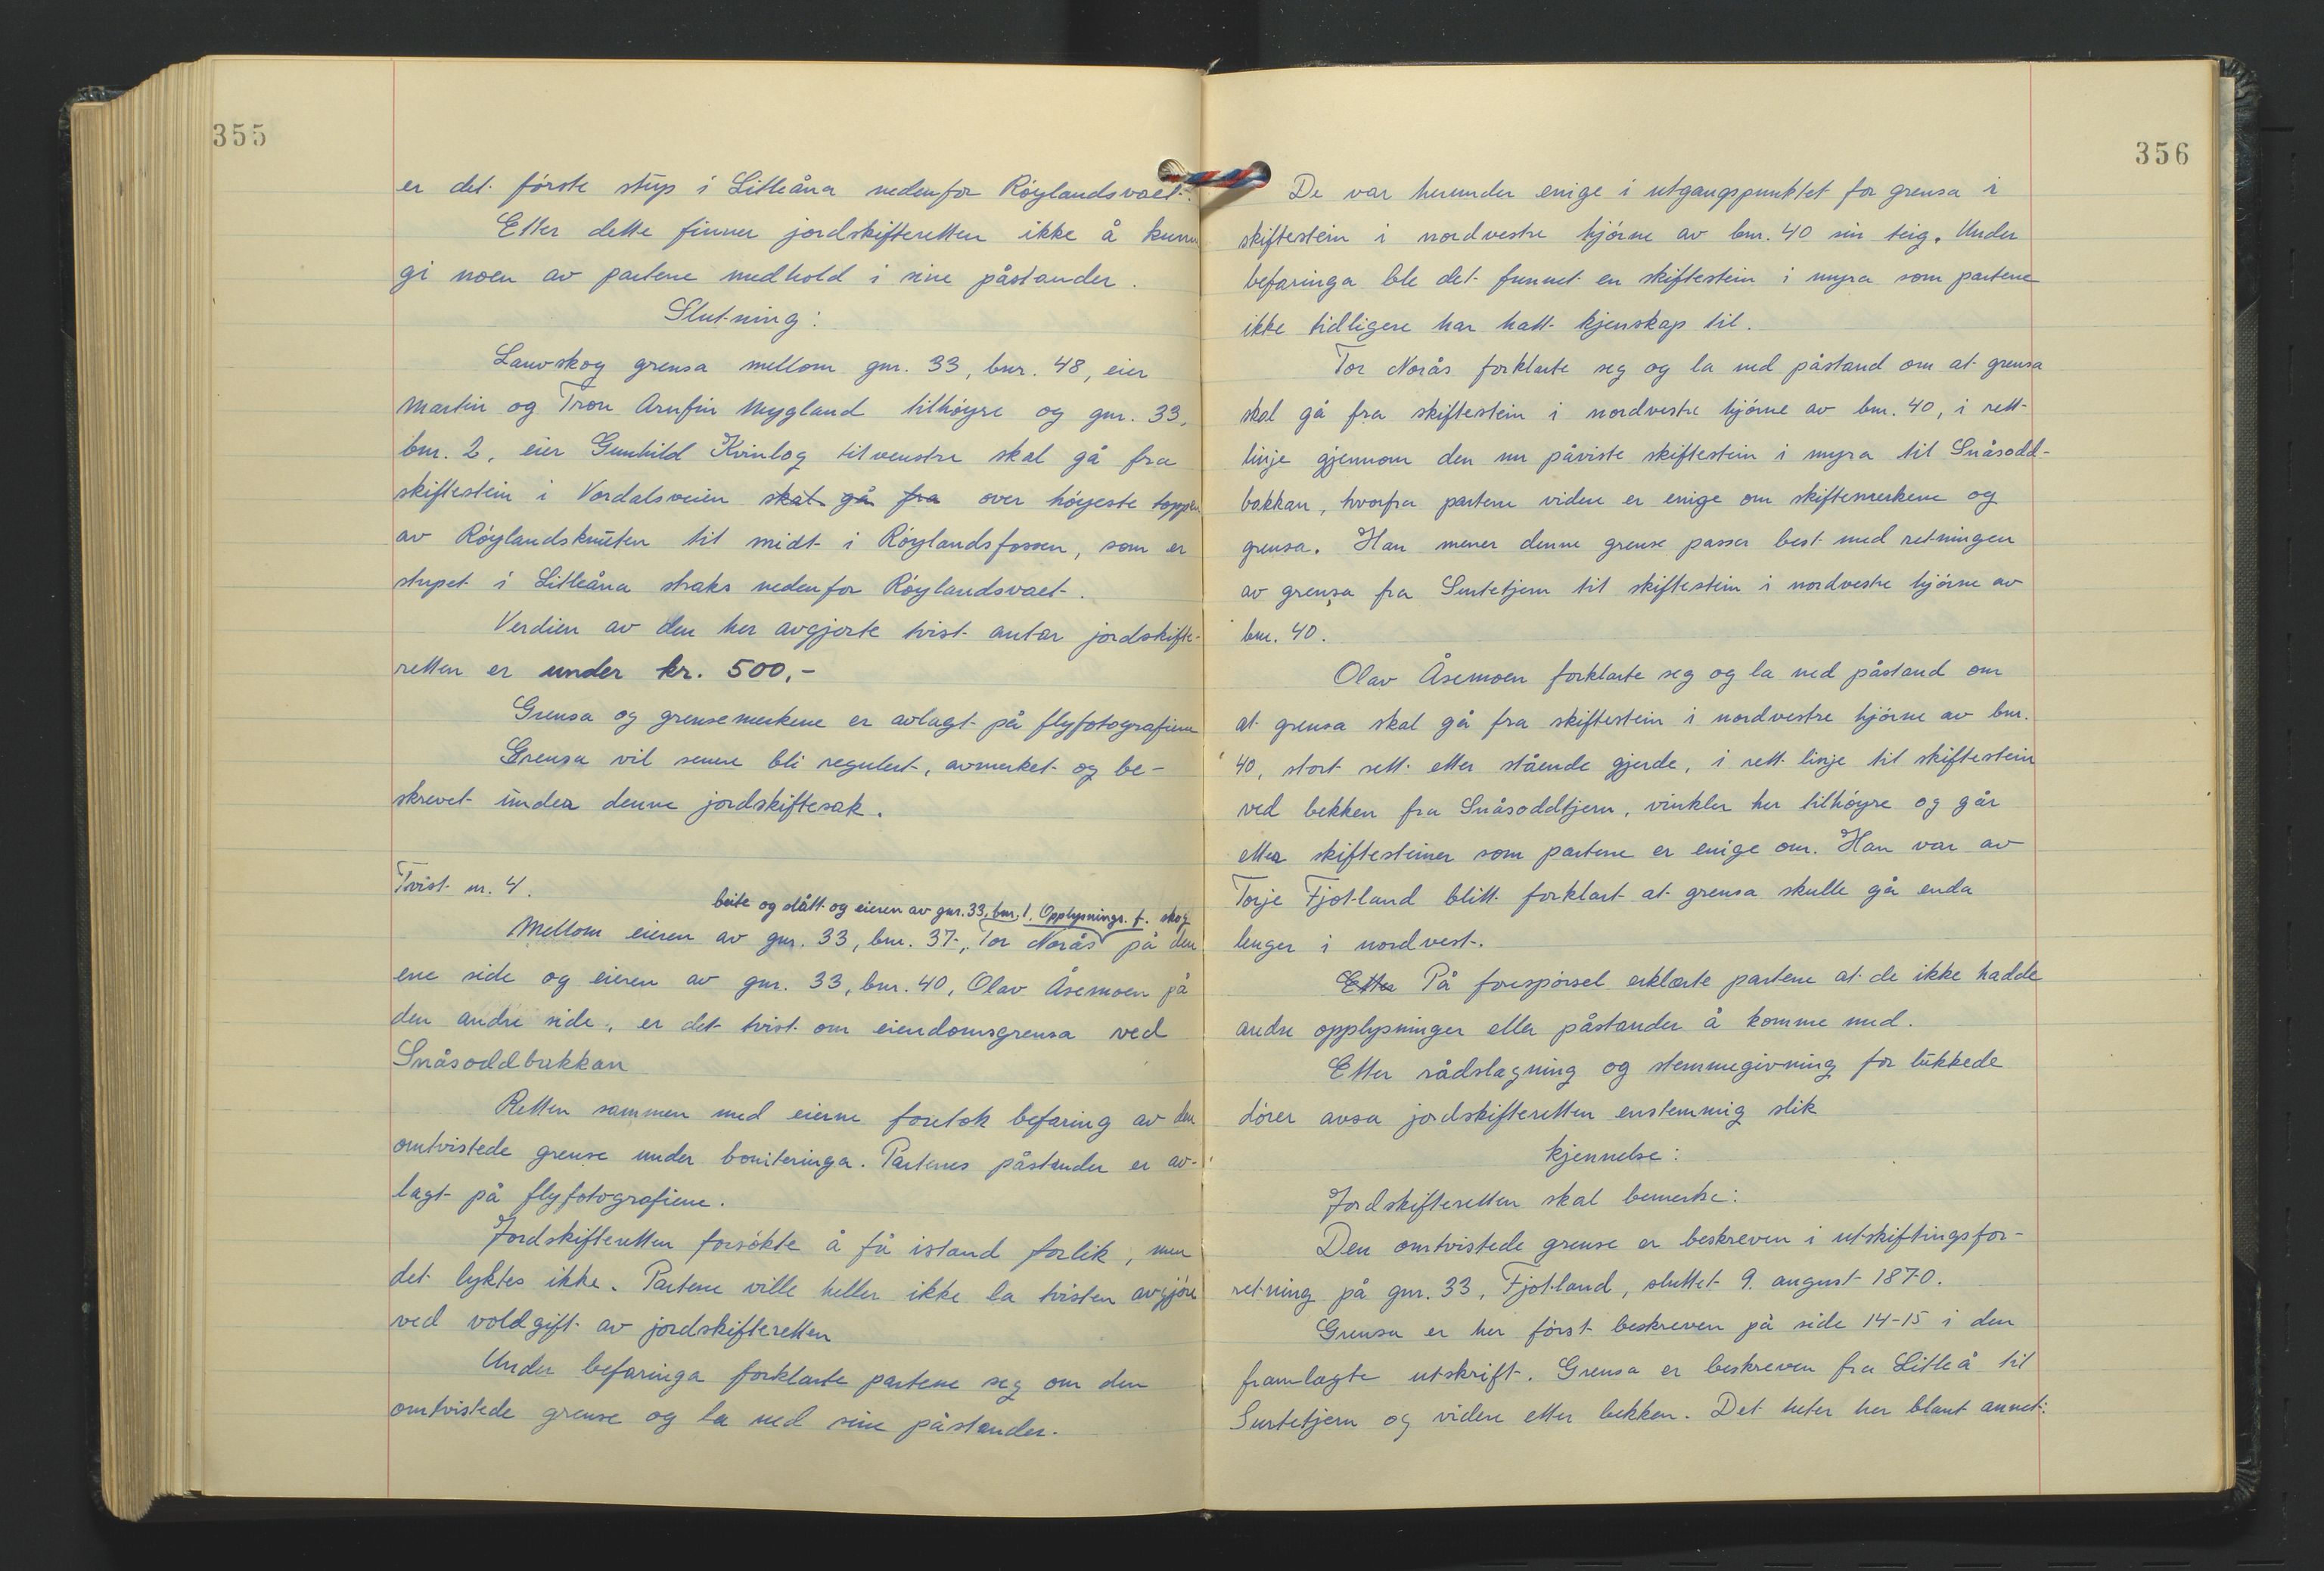 355
er det første stup i Litleåna nedenfor Røylandsvaet.
Etter dette finner jordskifteretten ikke å kunne
gi noen av partene medhold i sine påstander.
Slutning:
Lauvskog grensa mellom gnr. 33, bnr. 48, eier
Martin og Tron Arnfin Mygland tilhøyre og gnr. 33,
bnr. 2, eier Gunhild Kvinlog tilvenstre skal gå fra
skiftestein i Vordalsveien skal gå fra over høgeste toppen
av Røylandsknuten til midt i Røylandsfossen, som er
stupet i Litleåna straks nedenfor Røylandsvaet.
Verdien av den her avgjorte tvist antar jordskifte-
retten er under kr. 500,-
Grensa og grensemerkene er avlagt på flyfotografiene
Grensa vil senere bli regulert, avmerket og be-
skrevet under denne jordskiftesak.
Tvist nr. 4.
beite og slått og eieren av gnr. 33, bnr. 1, Opplysnings. f. skog
Mellom eieren av gnr. 33, bnr. 37, Tor Norås på den
ene side og eieren av gnr. 33, bnr. 40, Olav Åsemoen på
den andre side, er det tvist om eiendomsgrensa ved
Snåsoddbakkan
Retten sammen med eierne foretok befaring av den
omtvistede grense under boniteringa. Partenes påstander er av-
lagt på flyfotografiene.
Jordskifteretten forsøkte å få istand forlik, men
det lyktes ikke. Partene ville heller ikke la tvisten avgjøre
ved voldgift av jordskifteretten
Under befaringa forklarte partene seg om den
omtvistede grense og la ned sine påstander.
356
De var herunder enige i utgangspunktet for grensa i
skiftestein i nordvestre hjørne av bnr. 40 sin teig. Under
befaringa ble det funnet en skiftestein i myra som partene
ikke tidligere har hatt kjenskap til.
Tor Norås forklarte seg og la ned påstand om at grensa
skal gå fra skiftestein i nordvestre hjørne av bnr. 40, i rett
linje gjennom den nu påviste skiftestein i myra til Snåsodd-
bakkan, hvorfra partene videre er enige om skiftemerkene og
grensa. Han mener denne grense passer best med retningen
av grensa fra Surtetjern til skiftestein i nordvestre hjørne av
bnr. 40.
Olav Åsemoen forklarte seg og la ned påstand om
at grensa skal gå fra skiftestein i nordvestre hjørne av bnr.
40, stort sett etter stående gjerde, i rett linje til skiftestein
ved bekken fra Snåsoddtjern, vinkler her tilhøyre og går
etter skiftesteiner som partene er enige om. Han var av
Torje Fjotland blitt forklart at grensa skulle gå enda
lenger i nordvest.
Etter På forespørsel erklærte partene at de ikke hadde
andre opplysninger eller påstander å komme med.
Etter rådslagning og stemmegivning for lukkede
dører avsa jordskifteretten enstemmig slik
kjennelse:
Jordskifteretten skal bemerke:
Den omtvistede grense er beskreven i utskiftingsfor-
retning på gnr. 33, Fjotland, sluttet 9. august 1870.
Grensa er her først beskreven på side 14-15 i den
framlagte utskrift. Grensa er beskreven fra Litleå til
Surtetjern og videre etter bekken. Det heter her blant annet: